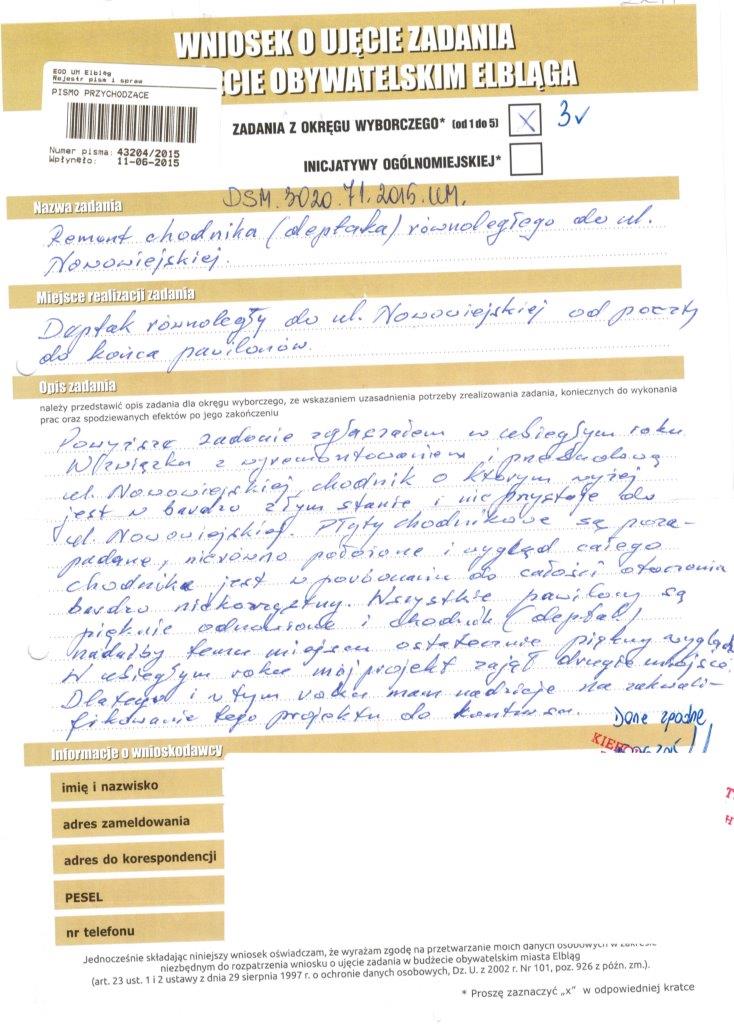 WNIOSEK O UJĘCIE ZADANIA
CIE OBYWATELSKIM ELBLĄGA
EOD UM Elbląg
Rejestr pism i spraw
PISMO PRZYCHODZĄCE
Numer pisma: 43204/2015
Wpłynęło: 11-06-2015
ZADANIA Z OKRĘGU WYBORCZEGO* (od 1 do 5) X 3
INICJATYWY OGÓLNOMIEJSKIEJ*
DSM.3020.71.2015.UM.
Nazwa zadania
Remont chodnika (deptaka) równoległego do ul.
Nowowiejskiej.
Miejsce realizacji zadania
Deptak równoległy do ul. Nowowiejskiej od poczty
do końca pawilonów.
Opis zadania
należy przedstawić opis zadania dla okręgu wyborczego, ze wskazaniem uzasadnienia potrzeby zrealizowania zadania, koniecznych do wykonania
prac oraz spodziewanych efektów po jego zakończeniu
Powyższe zadanie zgłaszałem w ubiegłym roku
W związku z wyremontowaniem i przebudową
ul. Nowowiejskiej, chodnik o którym wyżej
jest w bardzo złym stanie i nie przystaje do
ul. Nowowiejskiej. Płyty chodnikowe są poza-
padane, nierówno położone i wygląd całego
chodnika jest w porównaniu do całości otoczenia
bardzo niekorzystny. Wszystkie pawilony są
pięknie odnowione i chodnik (deptak)
nadałby temu miejscu ostatecznie piękny wygląd.
W ubiegłym roku mój projekt zajął drugie miejsce.
Dlatego i w tym roku mam nadzieję na zakwali-
fikowanie tego projektu do konkursu.
Dane zgodne
Informacje o wnioskodawcy
imię i nazwisko
adres zameldowania
adres do korespondencji
PESEL
nr telefonu
Jednocześnie składając niniejszy wniosek oświadczam, że wyrażam zgodę na przetwarzanie moich danych osobowych w zakresie
niezbędnym do rozpatrzenia wniosku o ujęcie zadania w budżecie obywatelskim miasta Elbląg
(art. 23 ust. 1 i 2 ustawy z dnia 29 sierpnia 1997 r. o ochronie danych osobowych, Dz. U. z 2002 r. Nr 101, poz. 926 z późn. zm.).
* Proszę zaznaczyć „x" w odpowiedniej kratce